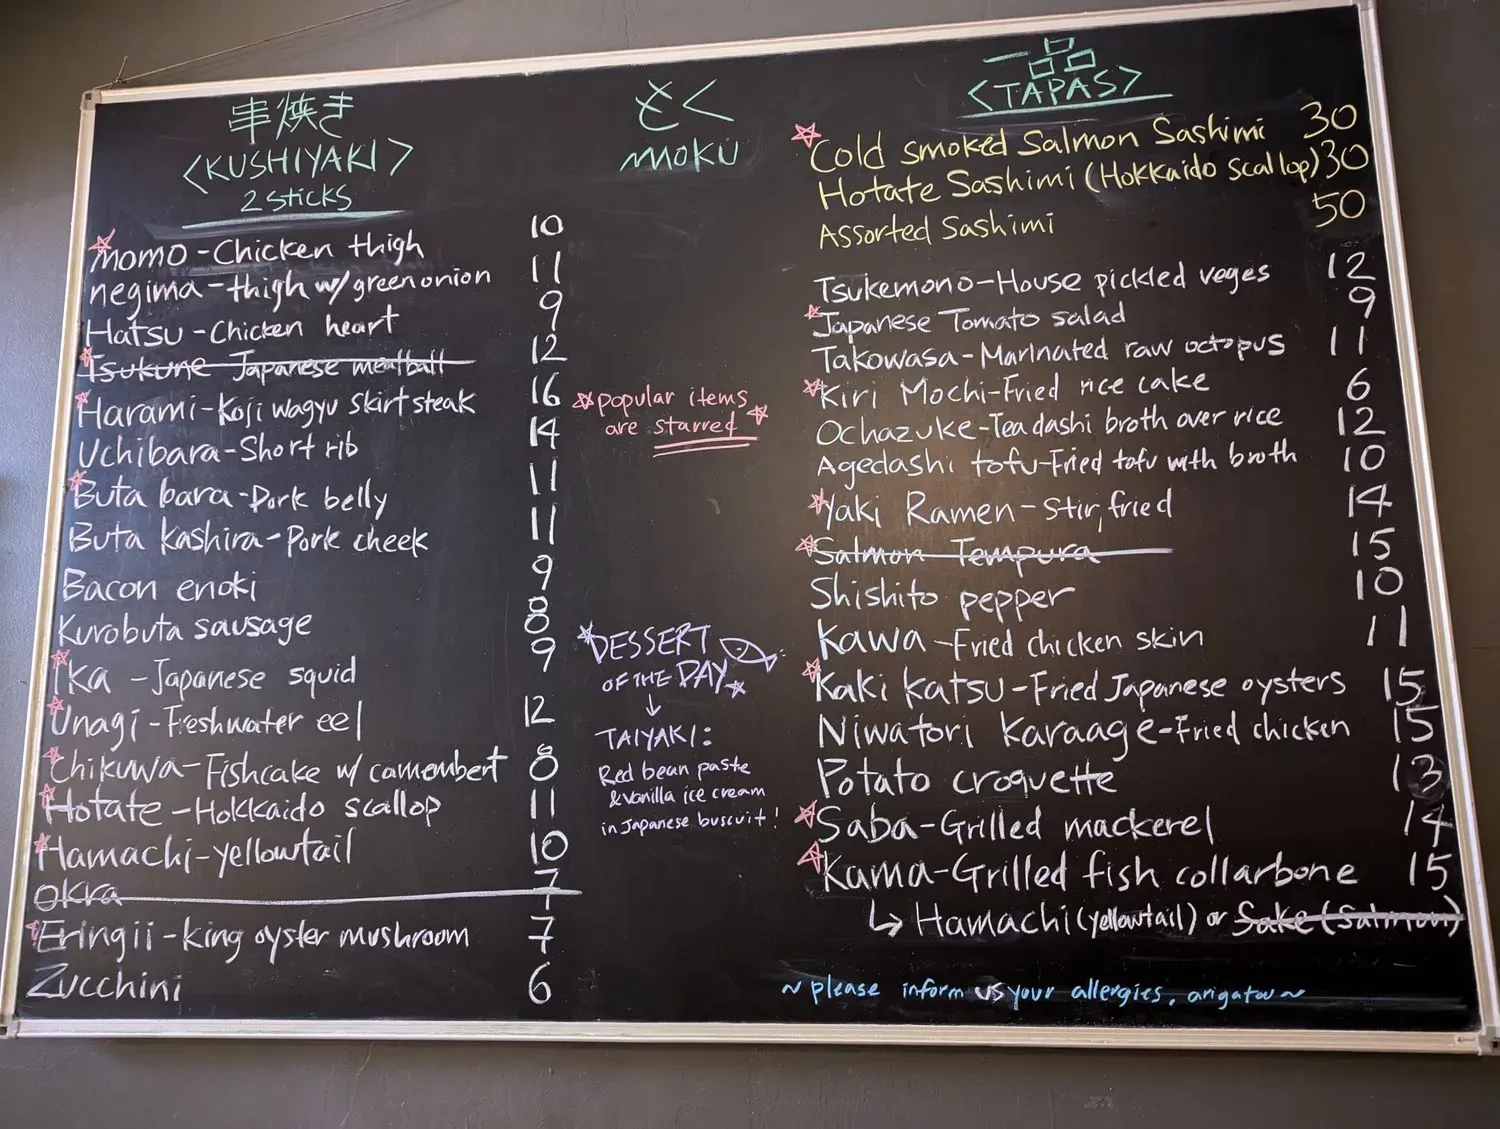 串焼き
<KUSHIYAKI>
2 Sticks
Momo-Chicken thigh 10
negima-thigh w/ green onion 11
Hatsu-Chicken heart 9
Tsukune Japanese meatball 12
Harami-Koji wagyu skirt steak 16
Uchibara-Short rib 14
Buta bara-Pork belly 11
Buta kashira-Pork cheek 11
Bacon enoki 9
Kurobuta sausage 8
Ika-Japanese squid 9
Unagi-Freshwater eel 12
Chikuwa-Fishcake w/ camembert 8
Hotate-Hokkaido scallop 11
Hamachi-yellowtail 10
Okra 7
Eringii-king oyster mushroom 7
Zucchini 6
もく
MOKU
popular items
are starred
DESSERT
OF THE DAY
↓
TAIYAKI:
Red bean paste
& vanilla ice cream
in Japanese buscuit!
一品
<TAPAS>
Cold smoked Salmon Sashimi 30
Hotate Sashimi (Hokkaido scallop) 30
Assorted Sashimi 50
Tsukemono-House pickled veges 12
Japanese Tomato salad 9
Takowasa-Marinated raw octopus 11
Kiri Mochi-Fried rice cake 6
Ochazuke-Tea dashi broth over rice 12
Agedashi tofu-Fried tofu with broth 10
Yaki Ramen-Stir, fried 14
Salmon Tempura 15
Shishito pepper 10
Kawa-Fried chicken skin 11
Kaki Katsu-Fried Japanese oysters 15
Niwatori Karaage-Fried chicken 15
Potato croquette 13
Saba-Grilled mackerel 14
Kama-Grilled fish collarbone 15
↳ Hamachi (yellowtail) or Sake (Salmon)
~ please inform us your allergies, arigatou ~